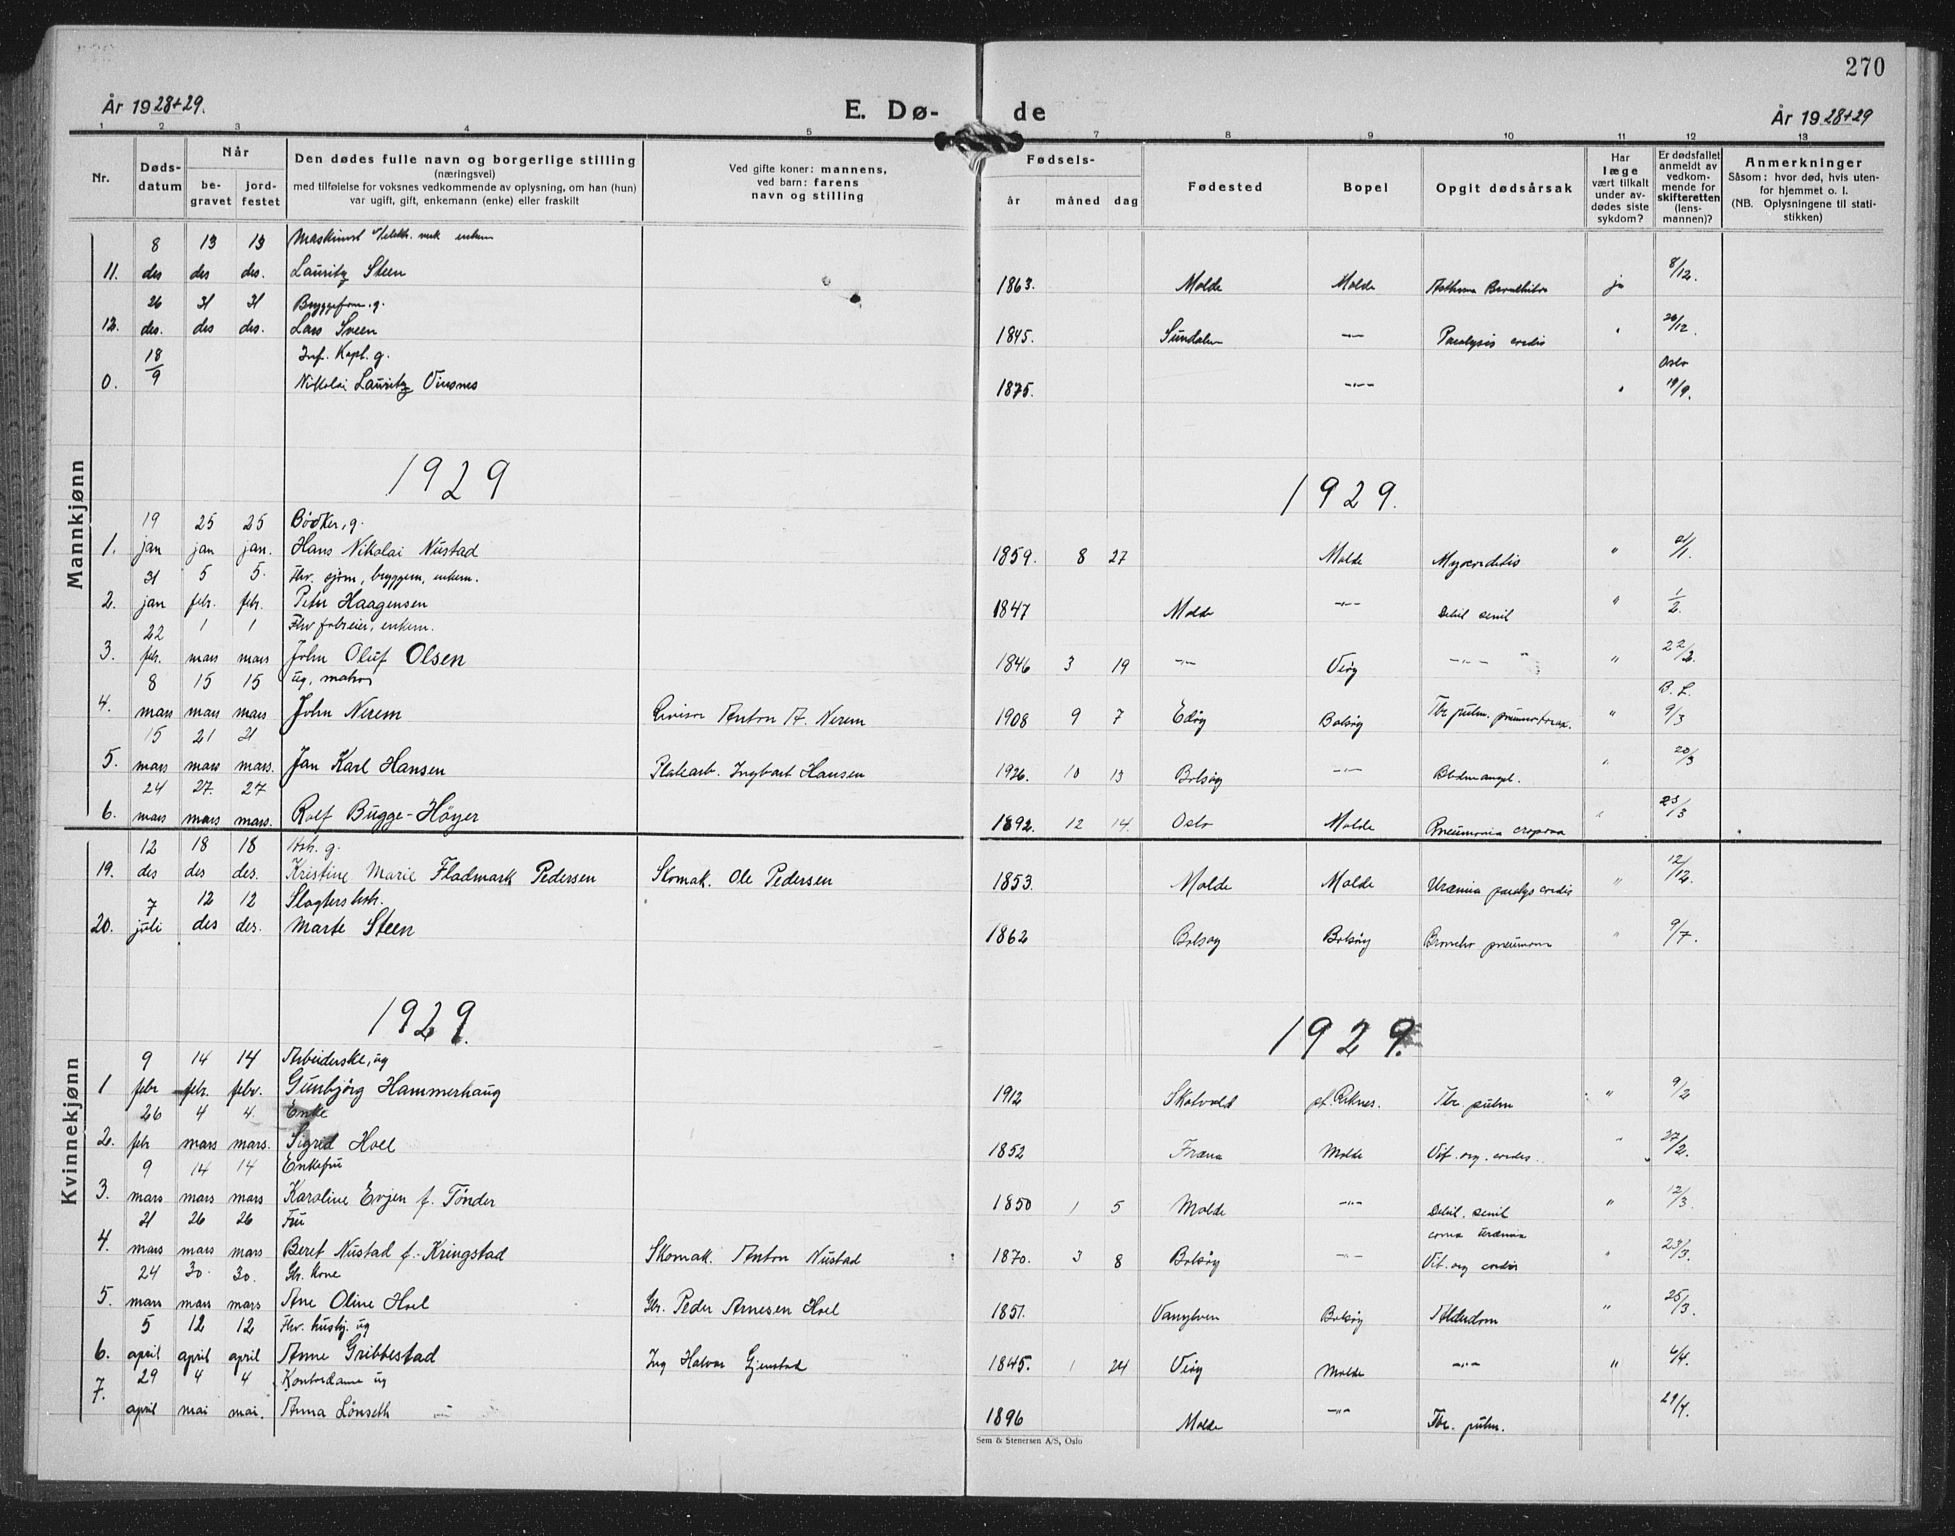 270
År 1928+29. E. Dø- de År 1928+29
1 2 3 4 5 7 8 9 10 11 12 13
Nr. Døds-datum Når be-gravet jord-festet Den dødes fulle navn og borgerlige stilling (næringsvei) med tilføielse for voksnes vedkommende av oplysning, om han (hun) var ugift, gift, enkemann (enke) eller fraskilt Ved gifte koner: mannens, ved barn: farens navn og stilling Fødsels- år måned dag Fødested Bopel Opgit dødsårsak Har læge vært tilkalt under av-dødes siste sykdom? Er dødsfallet anmeldt av vedkom-mende for skifteretten (lens-mannen)? Anmerkninger Såsom: hvor død, hvis uten-for hjemmet o. l. (NB. Oplysningene til stati-stikken)
Mannkjønn
8 13 13 Maskinist v/elektr. verk enkem
11. des des des. Lauritz Steen 1863. Molde Molde Asthma ja 8/12.
26 31 31 Bryggeform. g.
12. des. des des. Lars Sveen 1845. Sundalen -"- Paralysis cordis " 26/12.
18/9 Inf. Kapt. g. Oslo
0. Nikolai Lauritz Vinsnes 1875. -"- " 19/9.
1929 1929.
19 25 25 Bødker, g.
1. jan jan jan. Hans Nikolai Nustad 1859. 8 27 Molde Myocarditis " 21/1.
31 5 5. Fhv. sjøm, bryggem, enkem.
2. jan febr. febr. Peter Haagensen 1847 Molde -"- Debil senil " 1/2.
22 1 1 Fhv fabreier, enkem.
3. febr. mars mars John Oluf Olsen 1846 3 19 -"- Veøy -"- " 22/2.
8 15 15 ug, matros B. L.
4. mars mars mars John Nerem Revisor Anton A. Nerem 1908 9 7 Edøy Bolsøy Tbc pulm. pneumothorax. " 9/3
15 21 21
5. mars mars mars. Jan Karl Hansen Platearb. Ingbart Hansen 1926. 10 13 Bolsøy -"- " 20/3
24 27. 27
6. mars mars mars. Rolf Bugge-Höyer 1892. 12 14. Oslo Molde Pneumonia croposa " 25/3
Kvinnekjønn
12 18 18 Hstr. g.
19. des des des. Kristine Marie Fladmark Pedersen Skomak. Ole Pedersen 1853. Molde Molde Uræmia paralys cordis " 12/12.
7 12 12 Slagters hstr.
20. juli des des. Marte Steen 1862 Bolsøy Bolsøy Broncho pneumoni " 9/7.
1929. 1929.
9 14 14 Arbeiderske, ug
1 febr febr. febr. Gunbjørg Hammerhaug 1912 Skatvold pt. Reknes. Tbc pulm " 9/2
26 4 4. Enke
2. febr mars mars. Sigrid Hoel 1852 Fræna Molde Vit. org. cordis. " 27/2.
9 14 14 Enkefru
3. mars mars mars Karoline Evjen f. Tønder 1850 1 5 Molde -"- Debil. senil " 12/3.
21 26 26 Fru coma uræmia
4. mars mars mars Beret Nustad f. Kringstad Skomak. Anton Nustad 1870. 3 8 Bolsøy -"- Vit. org cordis " 23/3.
24 30. 30. Gbr. kone
5. mars mars mars Ane Oline Hoel Gbr. Peder Arnesen Hoel 1851. Vanylven Bolsøy Alderdom " 25/3.
5 12 12 Fhv. hustj. ug
6. april april april Anne Gribbestad Ing Halvor Gjenstad 1845. 1 24 Veøy Molde -"- " 6/4.
29 4 4 Kontordame ug
7. april mai mai. Anna Lønseth 1896 Molde -"- Tbc. pulm. 29/4.
Sem & Stenersen A/S, Oslo